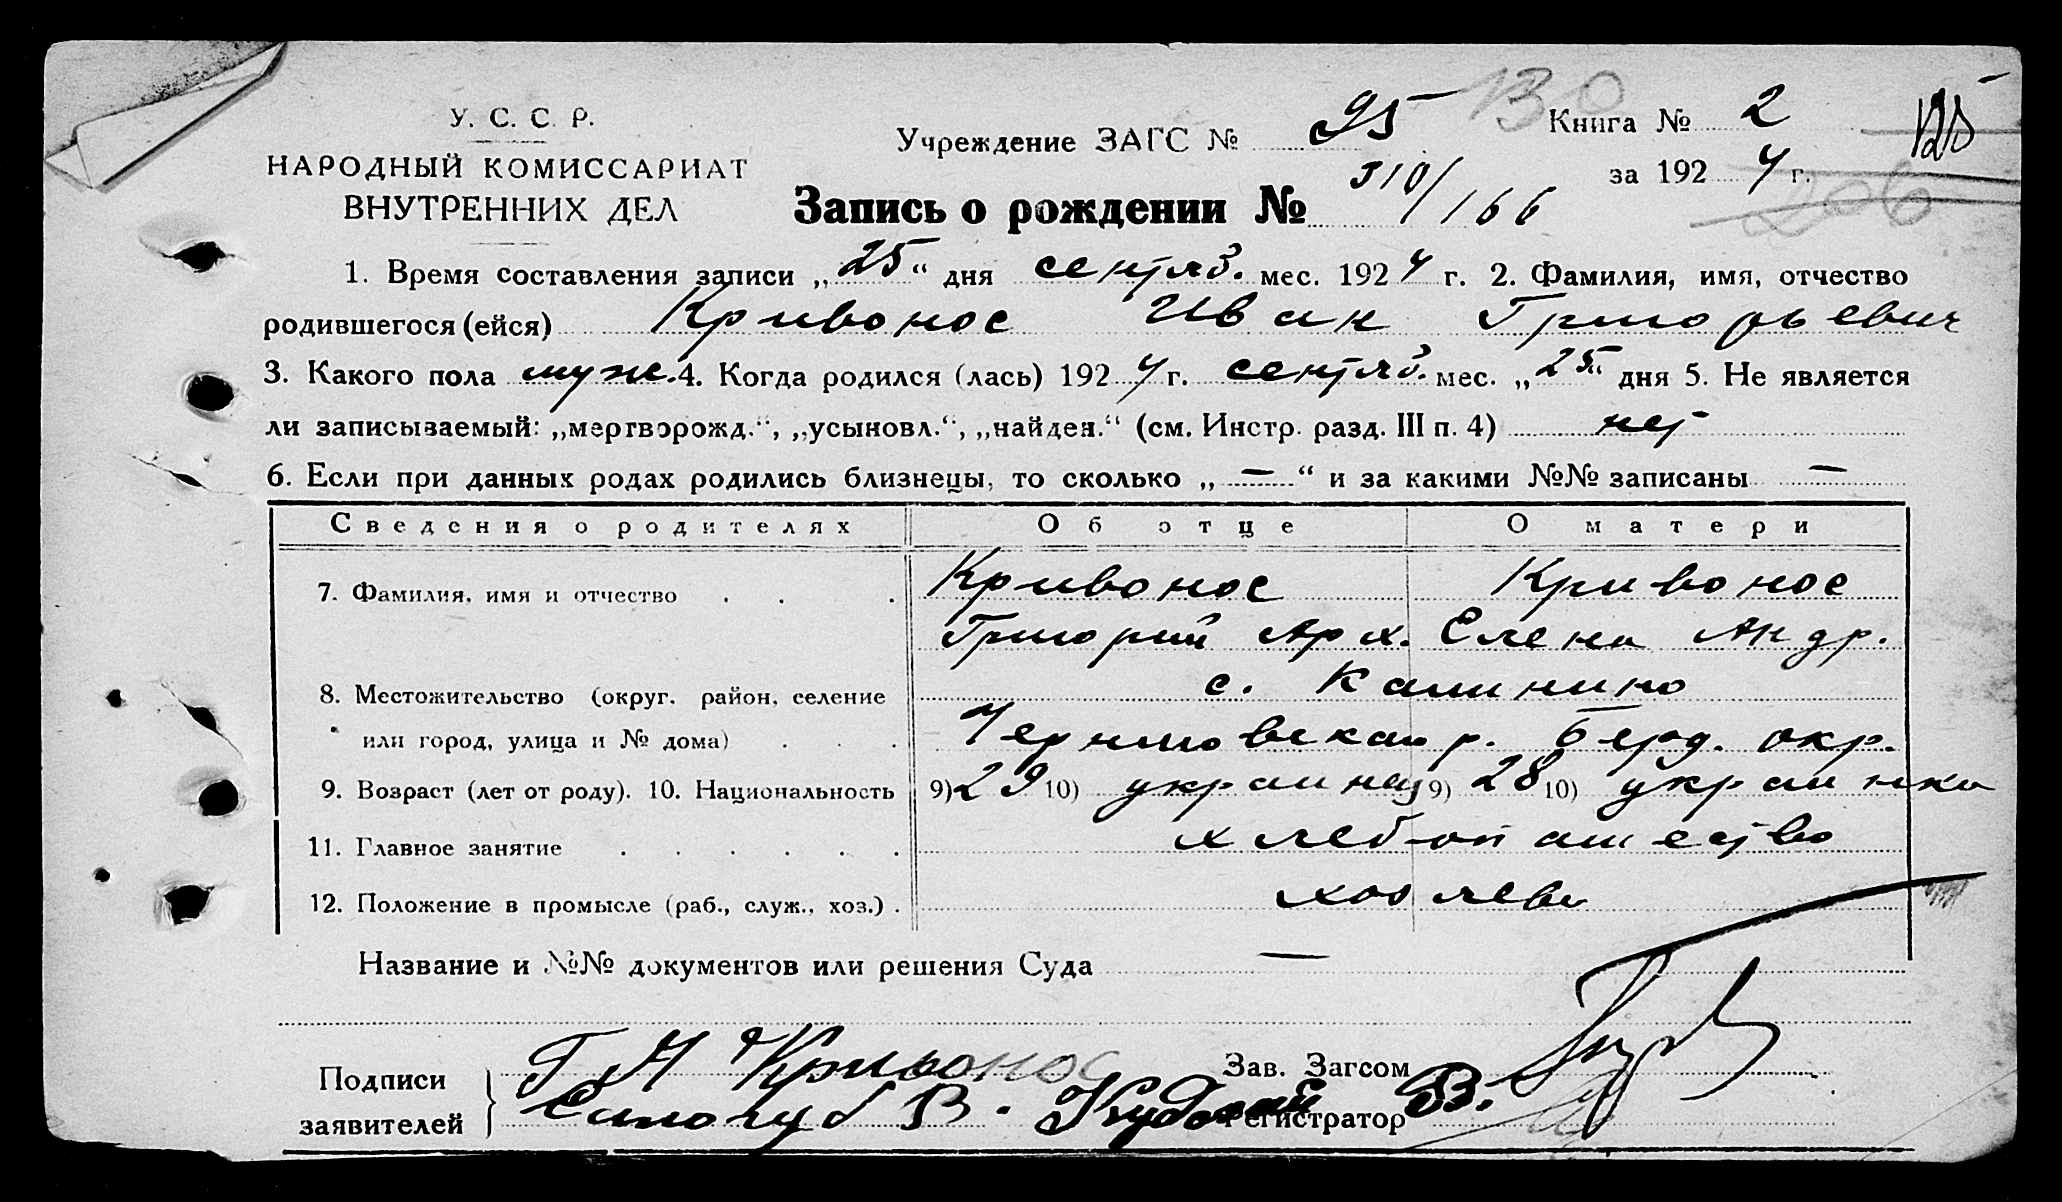 У. С. С. Р.
НАРОДНЫЙ КОМИССАРИАТ
ВНУТРЕННИХ ДЕЛ
130
Учреждение ЗАГС № 95 Книга № 2 125
за 1924 г.
206
Запись о рождении № 310/166
1. Время составления записи „25“ дня сентяб. мес. 1924 г. 2. Фамилия, имя, отчество
родившегося (ейся) Кривонос Иван Григорьевич
3. Какого пола муж. 4. Когда родился (лась) 1924 г. сентяб. мес. „25“ дня 5. Не является
ли записываемый: „мертворожд.“, „усыновл.“, „найден.“ (см. Инстр. разд. III п. 4) нет
6. Если при данных родах родились близнецы, то сколько „—“ и за какими №№ записаны —
Сведения о родителях Об отце О матери
7. Фамилия, имя и отчество . . . Кривонос Кривонос
Григорий Арх. Елена Андр.
8. Местожительство (округ, район, селение с. Калинино
или город, улица и № дома) . . . Черниговская р. Берд. окр.
9. Возраст (лет от роду). 10. Национальность 9) 29 10) украинец 9) 28 10) украинка
11. Главное занятие . . . . . . хлебопашество
12. Положение в промысле (раб., служ., хоз.) . хозяева
Название и №№ документов или решения Суда —
Подписи
заявителей
Г А Кривонос
Сологуб В.
Зав. Загсом
Регистратор